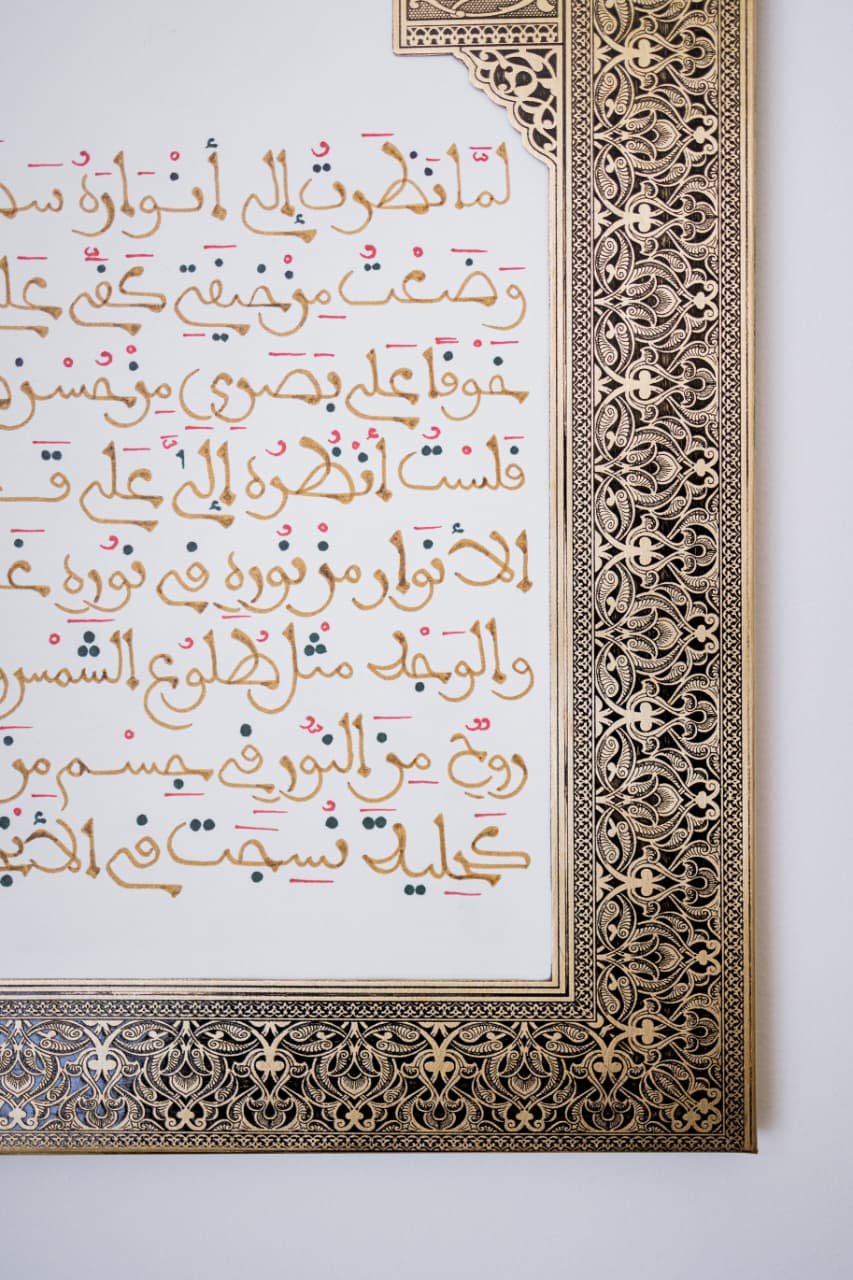 لَمَّا نَظَرتُ إِلى أَنْوَارَهُ
وَضَعْتُ مِنْ خِيفَتِي كَفِّي
خَوفًا عَلَى بَصَرِي مِنْ حُسْنِ
فَلَسْتُ أَنْظُرُهُ إِلَّا عَلَى
الأَنْوَار مِنْ نُورِهِ فِي نُورِهِ
والوَجْه مِثْل طُلُوعِ الشَّمْسِ
رُوحٌ مِنَ النُّورِ فِي جِسْمٍ مِنَ
كَحِلْيَةٍ نُسِجَت فِي